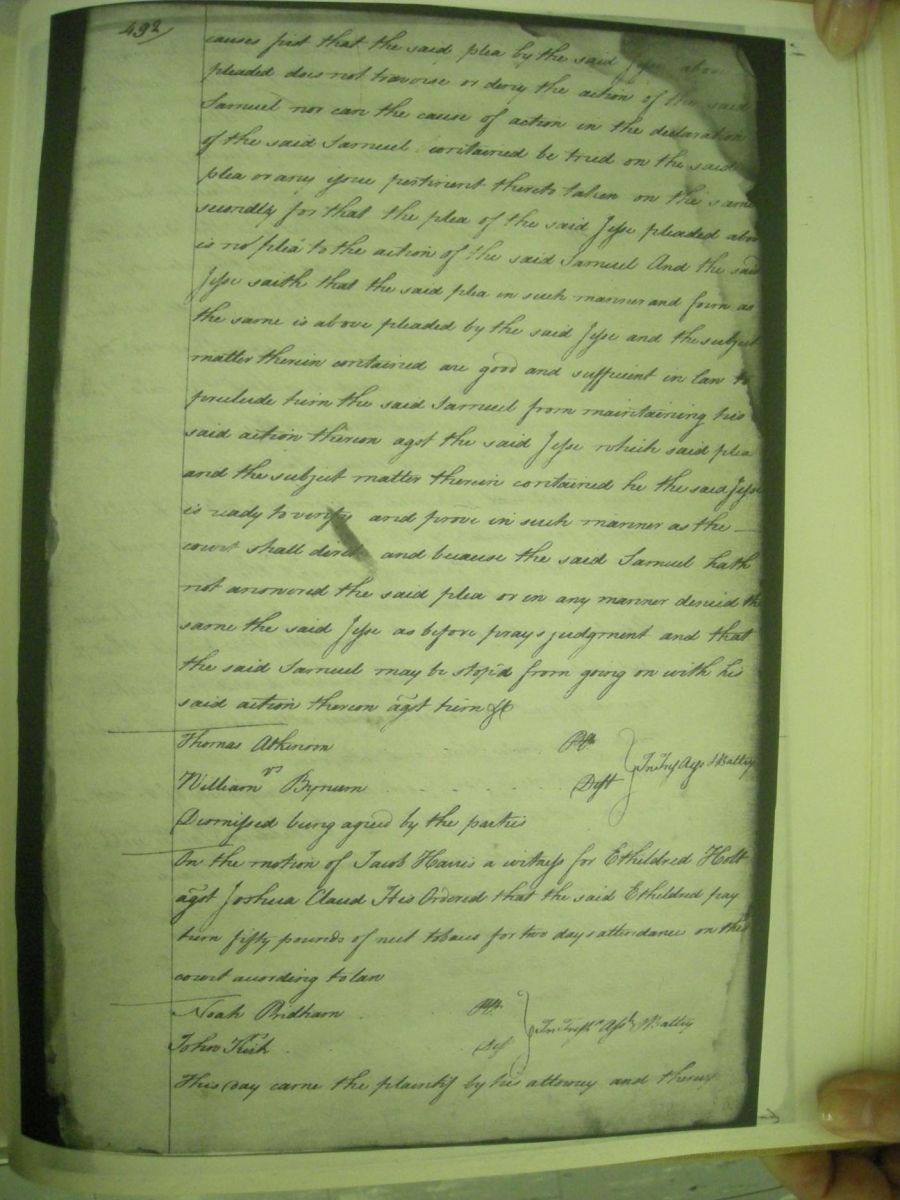 492/
causes first that the said plea by the said Jesse above
pleaded does not traverse or deny the action of the said
Samuel nor can the cause of action in the declaration
of the said Samuel contained be tried on the said
plea or any issue pertinent thereto taken on the same
secondly for that the plea of the said Jesse pleaded abov
is no plea to the action of the said Samuel And the said
Jesse saith that the said plea in such manner and form as
the same is above pleaded by the said Jesse and the subject
matter therein contained are good and sufficient in law to
preclude him the said Samuel from maintaining his
said action thereon agst the said Jesse which said plea
and the subject matter therein contained he the said Jesse
is ready to verify and prove in such manner as the
court shall direct and because the said Samuel hath
not answered the said plea or in any manner denied the
same the said Jesse as before prays judgment and that
the said Samuel may be stop'd from going on with his
said action thereon agst him &c
Thomas Atkinson Plt
vs In Tresp Ass & Battry
William Bynum Deft
Dismissed being agreed by the parties
On the motion of Jacob Harris a witness for Etheldred Holt
agst Joshua Claud It is Ordered that the said Etheldred pay
him fifty pounds of nett tobacco for two days attendance on this
court acording to law
Noah Pridham Plt
vs In Tresps Asst & Battry
John Kirk Def
This day came the plaintif by his attorney and thereup